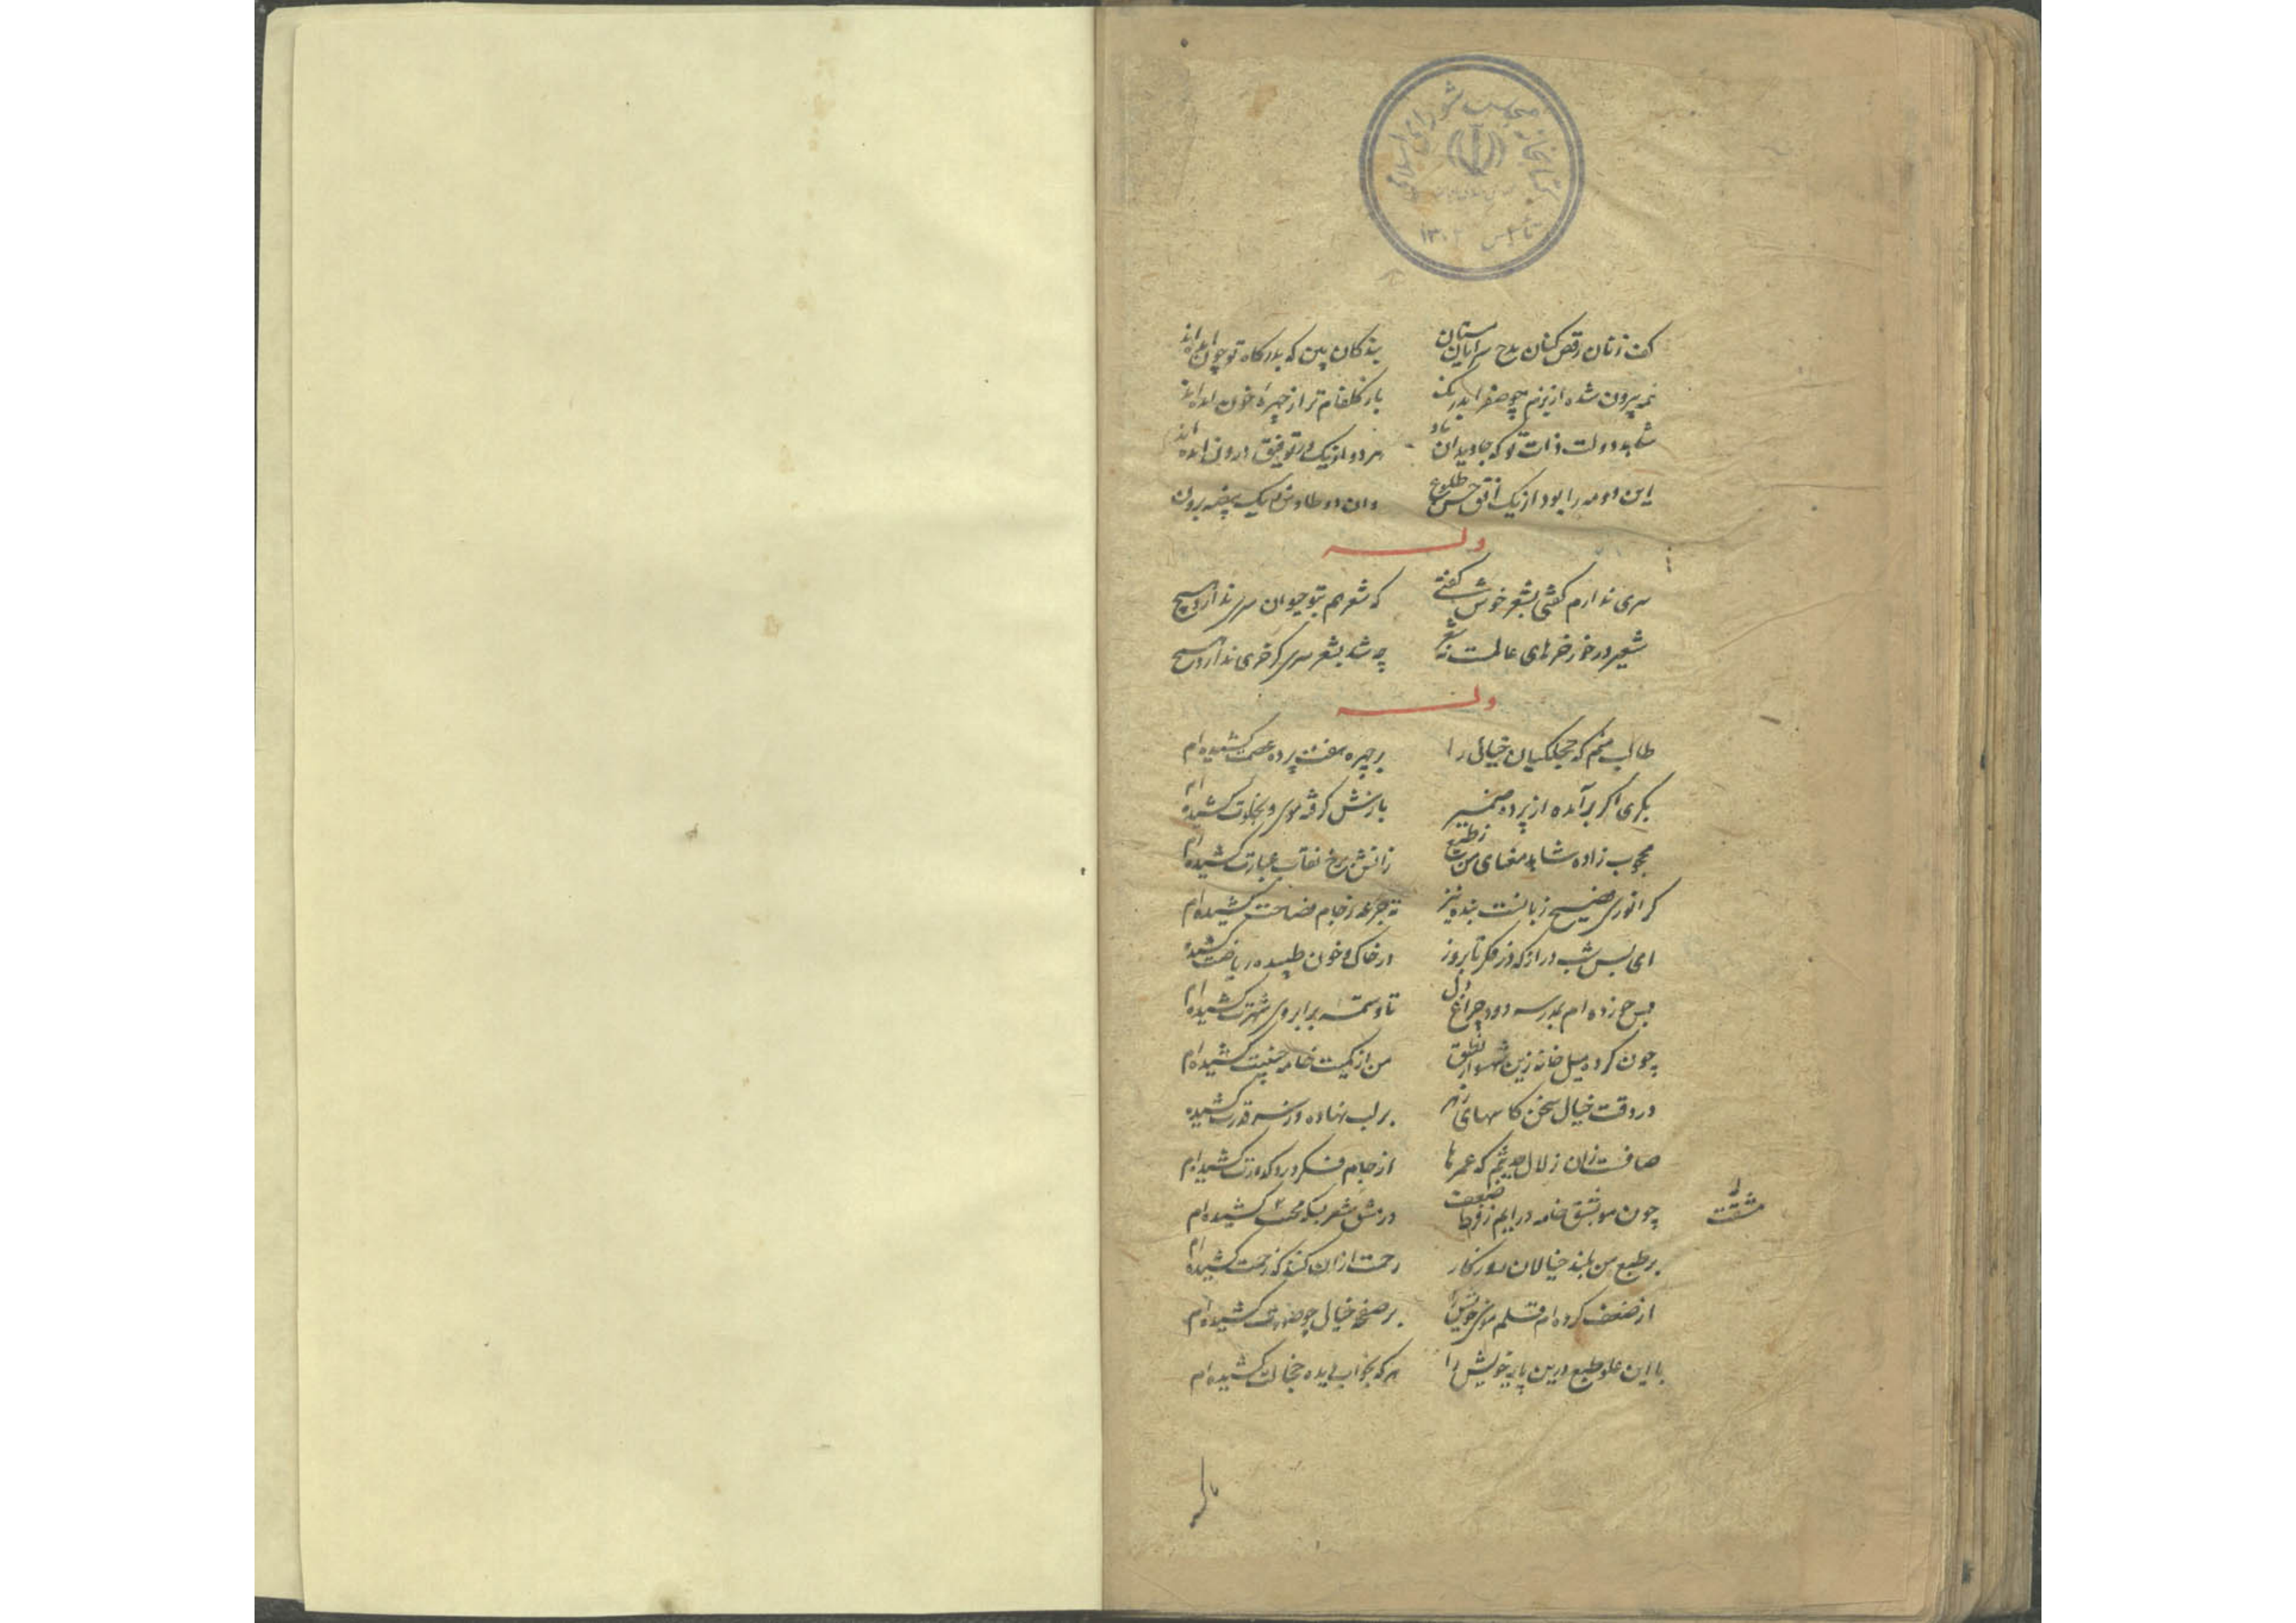 کتابخانه مجلس شورای اسلامی
تأسیس ۱۳۰۲
کف زنان رقص کنان مدح سرایان مستان بندکان بین که بدرکاه تو چون آمده‌اند
شاهد دولت ذات تو که جاویدان باد هر دو از یک در توفیق درون آمده‌اند
این دو مه را بود از یک افق حسن طلوع وان دو طاوس ز یک بیضه برون
وله
سری ندارم کفتی بشعر خوش کفتی که شعر هم بتو حیوان سری ندارد هیچ
شعیر در خور خرهای عالمست نه شعر چه شد بشعر سری کر خری ندارد هیچ
وله
طالب منم که حجلکیان خیال را بر چهره هفت پرده عصمت کشیده‌ام
بکری اکر برآمده از پرده ضمیر بازش کرفته موی و بخلوت کشیده‌ام
محجوب زاده شاهد معنای من ز طبع زانش برخ نقاب عبارت کشیده‌ام
کر انوری فصیح زبانست بنده نیز ته جرعه ز جام فصاحت کشیده‌ام
ای بس شب دراز که در فکر تا بروز در خاک و خون طپیده ریاضت کشیده
بس خورده‌ام بمدرسه دود چراغ دل تا وسمه بر ابروی شهرت کشیده‌ام
چون کرده میل خانه زین شهسوار نطق من از کمیت خامه جنیبت کشیده‌ام
در وقت خیال سخن کاسهای زهر بر لب نهاده و ز سر قدرت کشیده
صافست زان زلال حدیثم که عمرها از جام فکر درد کدورت کشیده‌ام
چون مو بشق خامه درایم ز فرط ضعف در مشق شعر بسکه محنت کشیده‌ام
مشقت
بر طبع من بلند خیالان روزکار رحمت ازان کنند که زحمت کشیده‌ام
از ضعف کرده‌ام قلم موی خویش را بر صفحه خیال چو صورت کشیده‌ام
با این علو طبع درین پایه خویش را هر که بخواب دیده خجالت کشیده‌ام